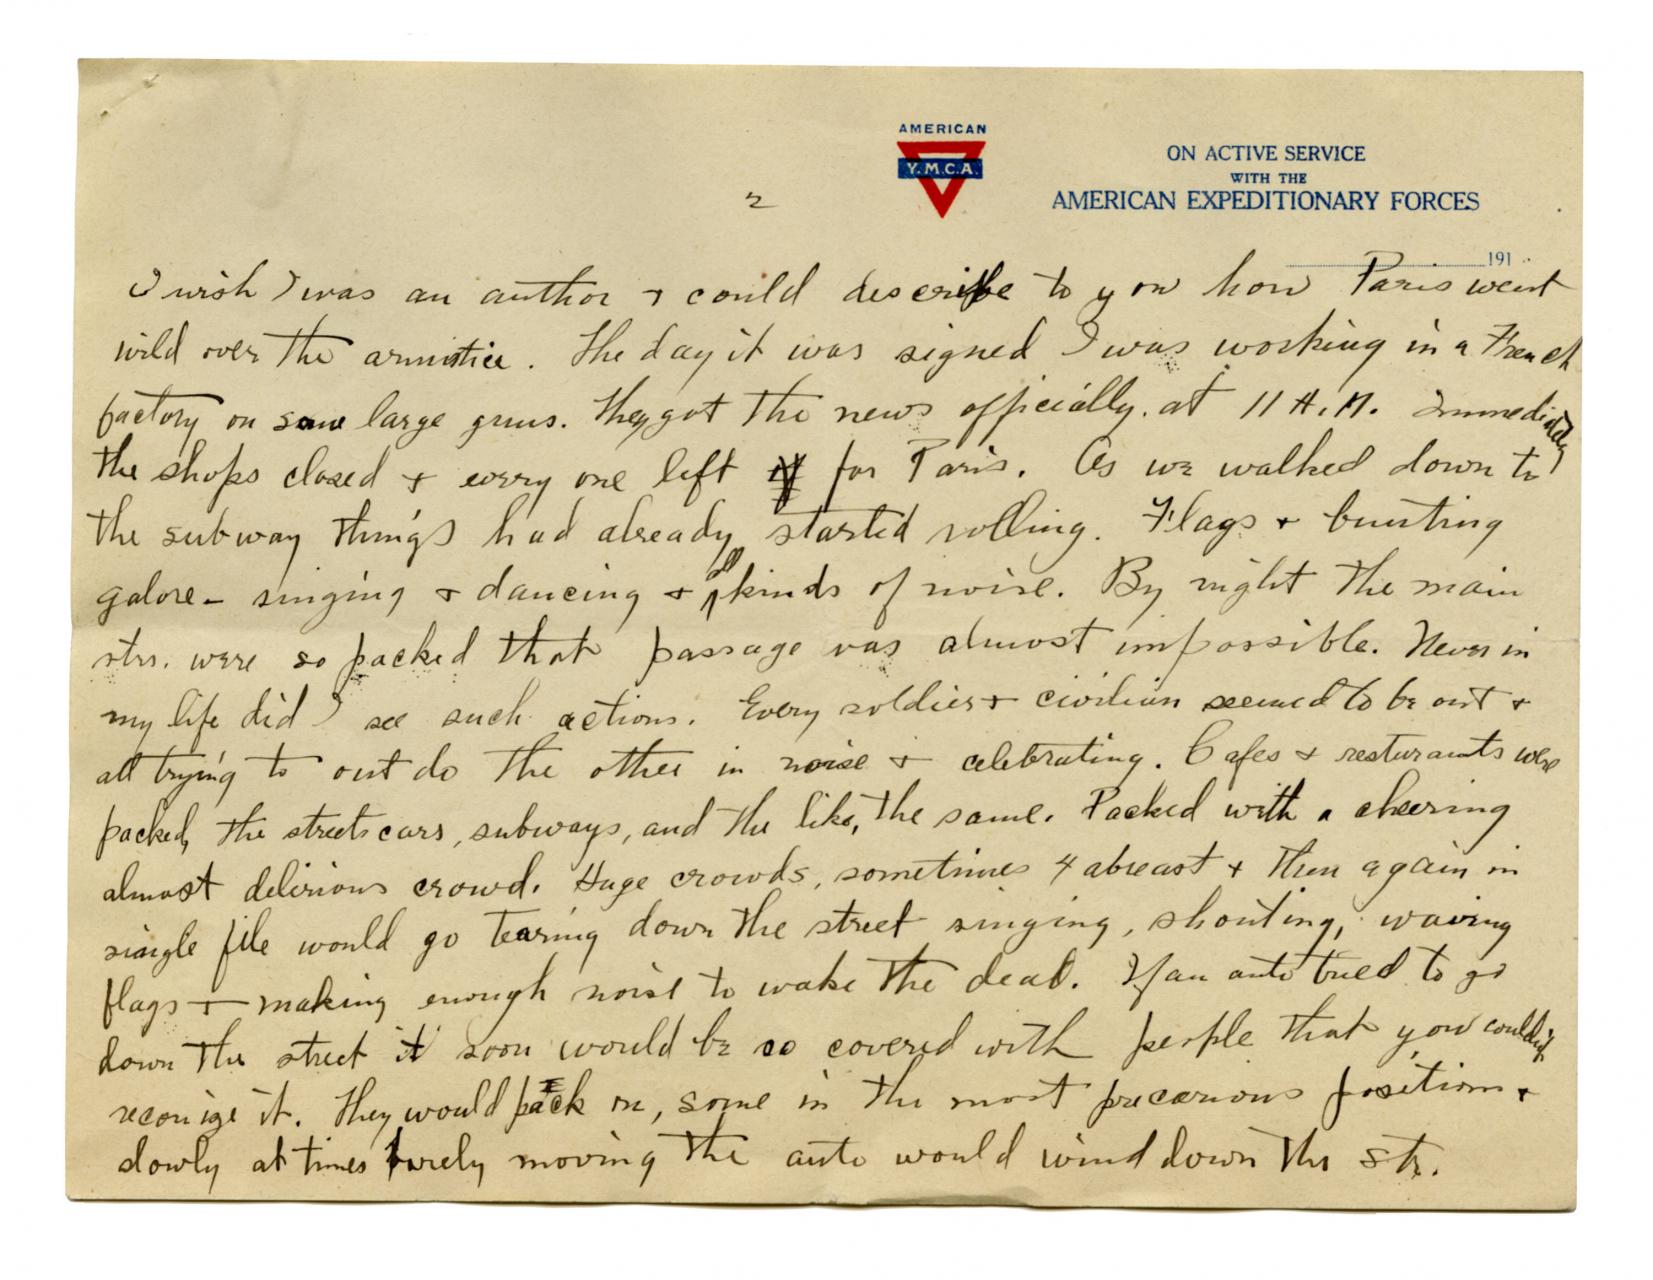 AMERICAN
Y.M.C.A.
ON ACTIVE SERVICE
WITH THE
AMERICAN EXPEDITIONARY FORCES
2
191
I wish I was an author + could describe to you how Paris went
wild over the armistice. The day it was signed I was working in a French
factory on some large guns. They got the news officially. at 11 A.M. Immediately
the shops closed + every one left for Paris. As we walked down to
the subway things had already started rolling. Flags + bunting
galore - singing + dancing + all kinds of noise. By night the main
strs. were so packed that passage was almost impossible. Never in
my life did I see such actions. Every soldier + civilian seemed to be out +
all trying to out do the other in noise + celebrating. Cafes + resturants were
packed, the streets cars, subways, and the like, the same. Packed with a cheering
almost delirious crowd. Huge crowds, sometimes 4 abreast + then again in
single file would go tearing down the street singing, shouting, waving
flags + making enough noise to wake the dead. If an auto tried to go
down the street it soon would be so covered with people that you couldn't
reconize it. They would pack on, some in the most precarious positions +
slowly at times barely moving the auto would wind down the str.